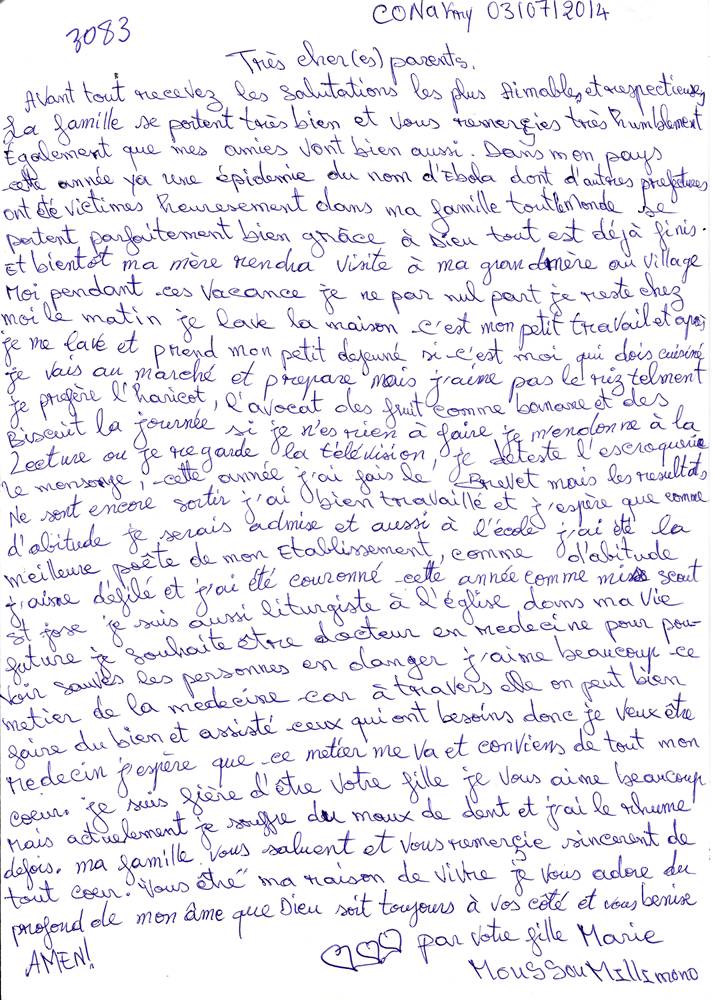 CONaKrny 03/07/2014
3083
Très cher(es) parents.
Avant tout recevez les salutations les plus aimables, et respectieuses
La famille se portent très bien et vous remergies très humblement
Également que mes amies vont bien aussi. Dans mon pays
cette année ya une épidemie du nom d'Ebola dont d'autres prefectures
ont été victimes heuresement dans ma famille toutlemonde se
portent parfaitement bien grâce à Dieu tout est déjà finis.
Et bientot ma mère rendra visite à ma grandmère au village
Moi pendant ces vacance je ne par nul part je reste chez
moi le matin je lave la maison c'est mon petit travail et après
je me lave et prend mon petit dejeuné si c'est moi qui dois cuisiné
je vais au marché et prepare mais j'aime pas le riz telment
je prefère l'haricot, l'avocat des fruit comme banane et des
Biscuit la journée si je n'es rien à faire je m'endonne à la
Lecture ou je regarde la télévision, je deteste l'escroquerie
le monsonge, cette année j'ai fais le Brevet mais les resultats
Ne sont encore sortir j'ai bien travaillé et j'espère que comme
d'abitude je serais admise et aussi à l'école j'ai été la
meilleure poête de mon Etablissement, comme d'abitude
j'aime défilé et j'ai été couronné cette année comme miss scout
St jose je suis aussi liturgiste à l'église dans ma vie
future je souhaite être docteur en medecine pour pou-
voir sauvés les personnes en danger j'aime beaucoup ce
metier de la medecine car à travers elle on peut bien
faire du bien et assisté ceux qui ont besoins donc je veux être
medecin j'espère que ce metier me va et conviens de tout mon
coeur. je suis fière d'être votre fille je vous aime beaucoup
Mais actuelement je souffre du maux de dent et j'ai le rhume
defois. ma famille vous saluent et vous remergie sincerent de
tout coeur. "vous être" ma raison de vivre je vous adore du
profond de mon âme que Dieu soit toujours à vos côté et vous benise
AMEN! par votre fille Marie
MOUSSOU Millimono